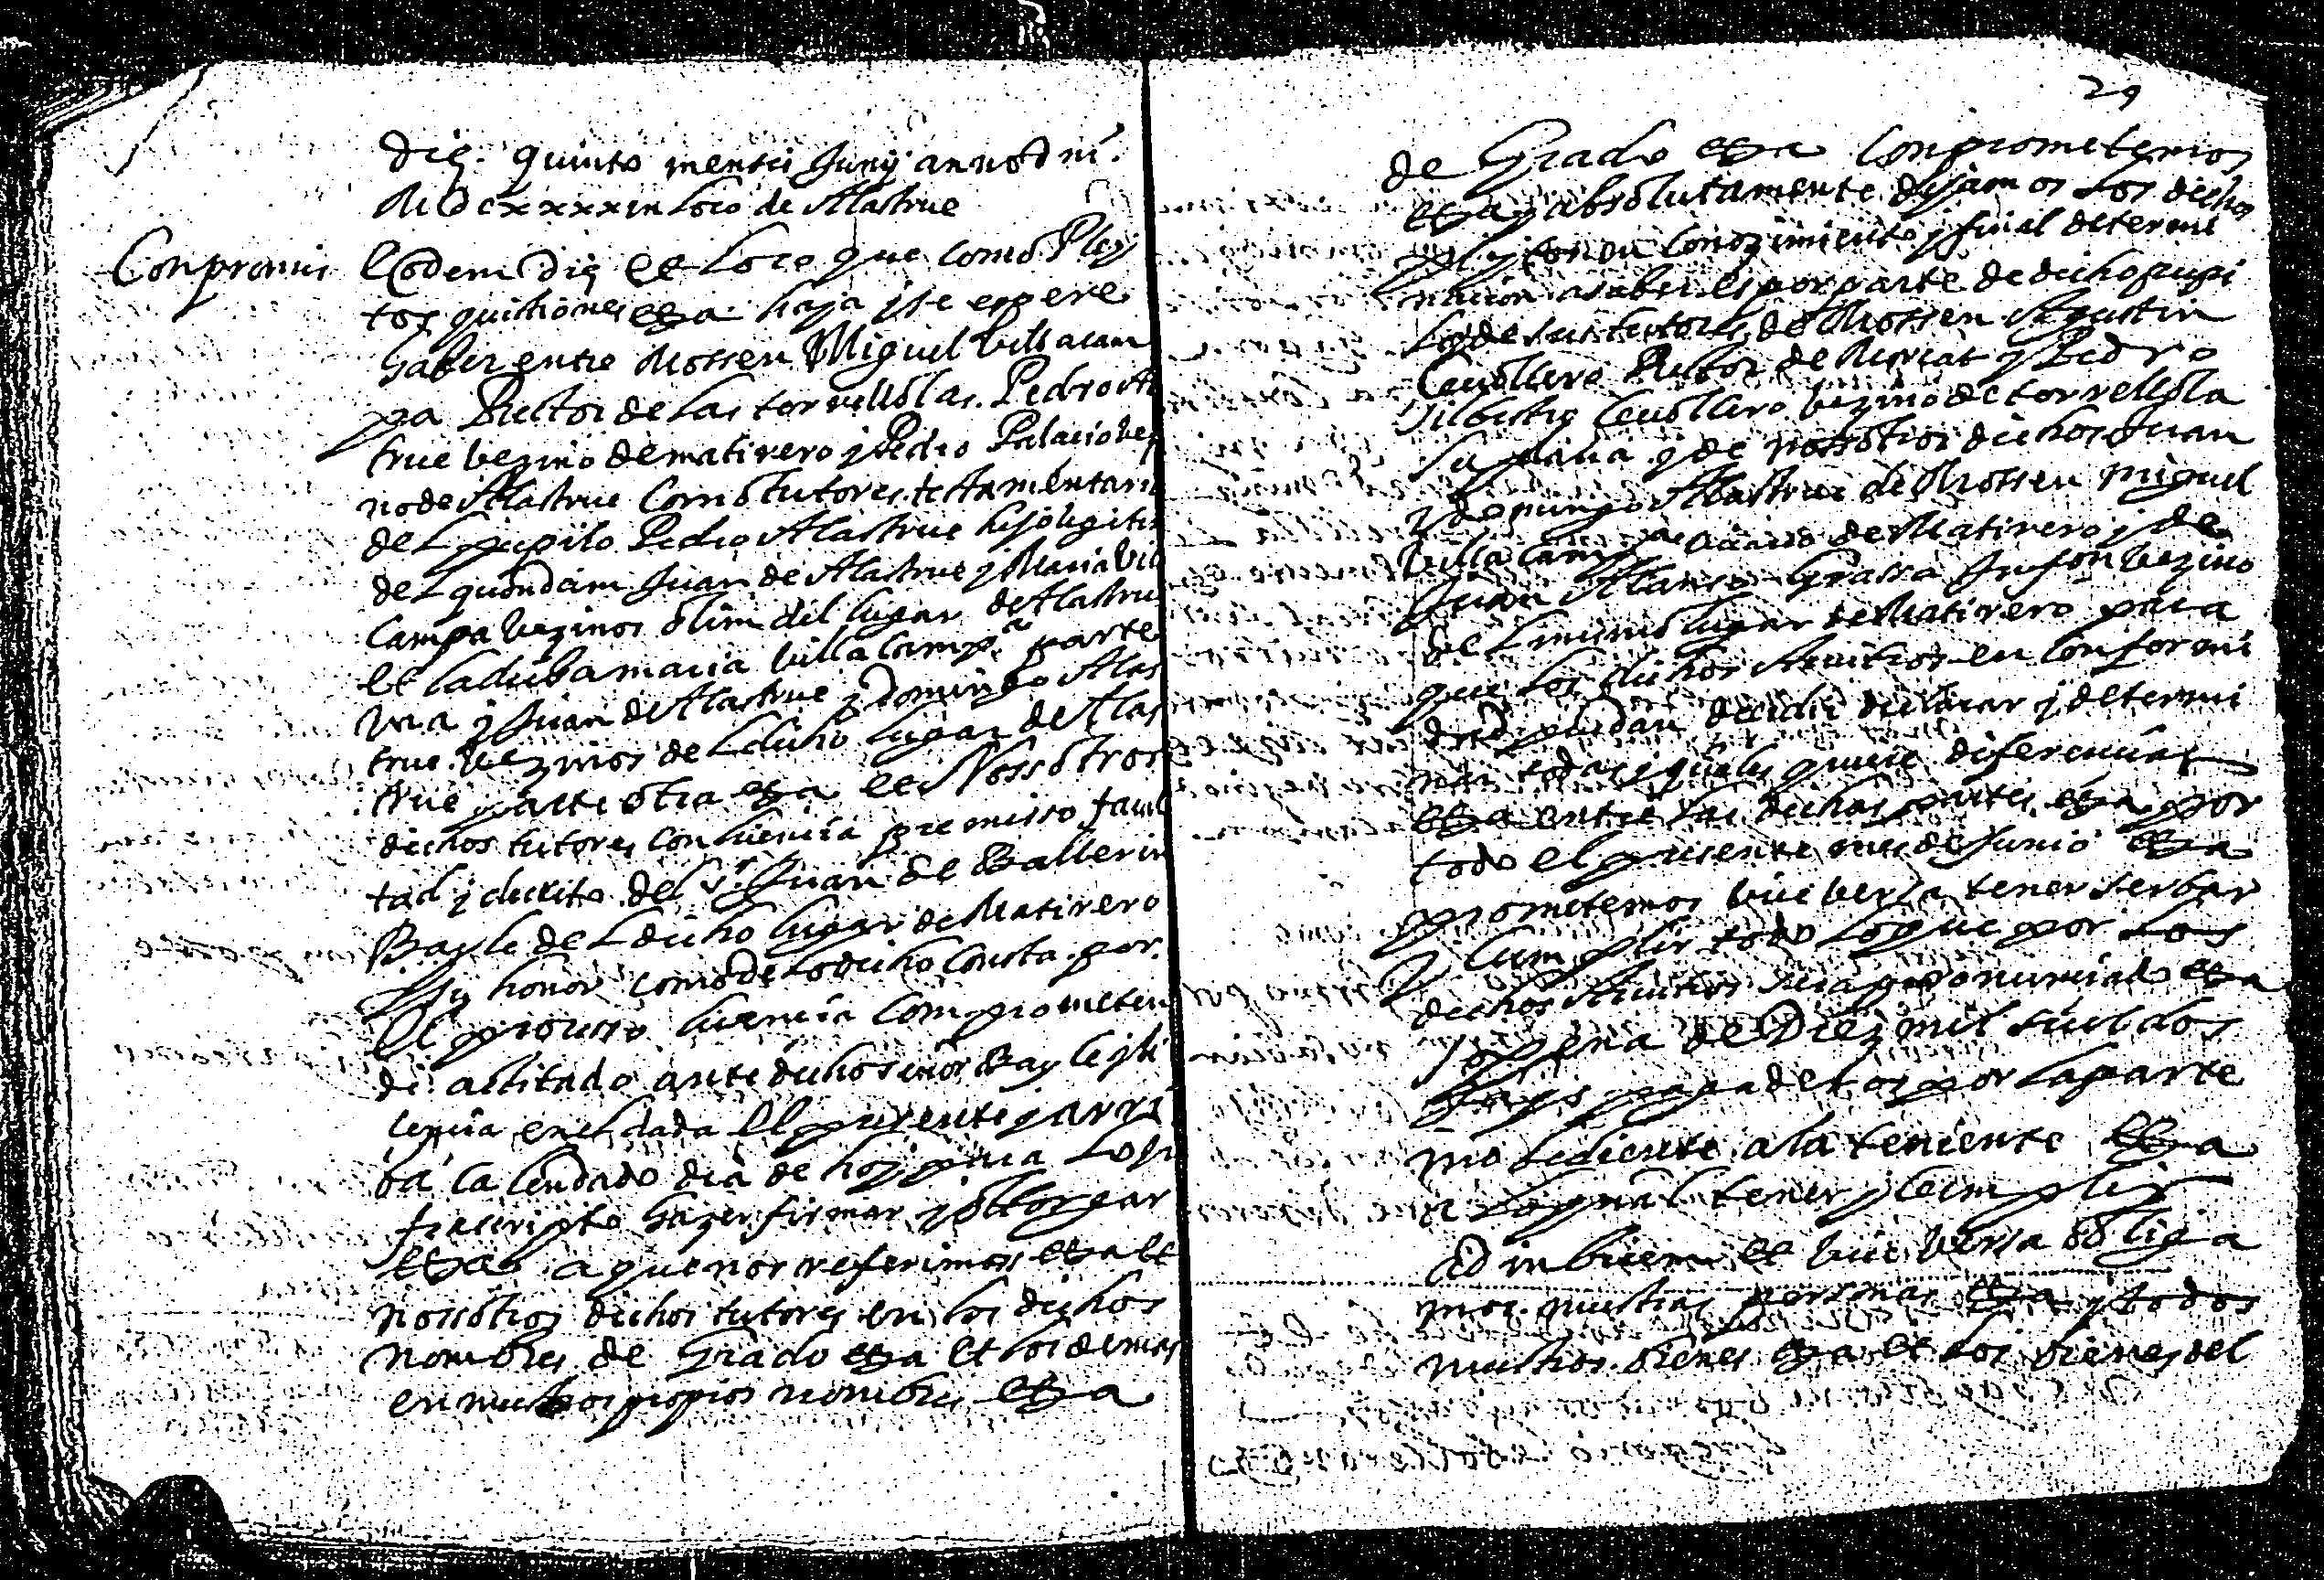 Die. quinto mensis Junij anno dni.
MDCxxxx in loco de Alastrue
Conpromis Eodem die et loco que como Pley
tos quistiones etza haya y se espere
haber entre Mossen Miguel Villacam
pa Rector de las torrellolas. Pedro Al
true bezino de matirero y Pedro Palacio bez
no de Alastrue como tutores testamentari
del pupilo Pedro Alastrue hijo legitim
del quondam Juan de Alastrue y Maria Vil
campa bezinos olim del lugar de Alastru
et la dicha maria villacampa parte
una y Juan de Alastrue y Domingo Alas
true. bezinos del dicho lugar de Alas
true parte otra etza et Nossotros
dichos tutores con licencia premisso facul
tad y decreto del Sr. Juan de Ballerin
Bayle del dicho lugar de Matirero
y honor como de lo dicho consta. por.
el processo licencia comprometen
di actitado ante dicho señor Bayle y li
cencia en el dada el presente y arri
ba calendado dia de hoy para lo in
frascripto hazer firmar y ottorgar
etzal a que nos referimos etza et
nossotros dichos tutores en los dichos
nombres de Grado etza et los demas
en nuestros propios nombres etza
29
de Grado etza Conprometemos
etza y absolutamente dejamos los dichos
pleytos en conozimiento y final determi
nacion a saber es por parte de dicho pupi
lo y de sus tutores de Mossen Agustin
Cavallero Rector de y Pedro
Cavallero bezino de torrellola
la plana y de nossotros dichos Juan
y domingo Alastrue de Mossen miguel
villacampa vicario de Matirero y de
Juan Alanso Grassa Infon bezino
del mismo lugar de Matirero para
que los dichos Arvitros en conformi
dad puedan decidir declarar y determi
nar todas y quales quiere diferencias
etza entre las dichas partes etza por
todo el presente mes de Junio etza
prometemos vice versa tener serbar
y cumplir todo lo que por los
dichos Arvitros sera pronunciado etza
so pena de Diez mil sueldos
Jays pagaderos por la parte
no tediente a la teniente etza
a lo qual tener y cumplir
ad invicem et vice versa obliga
mos nuestras personas etza y todos
nuestros bienes etza et los bienes del